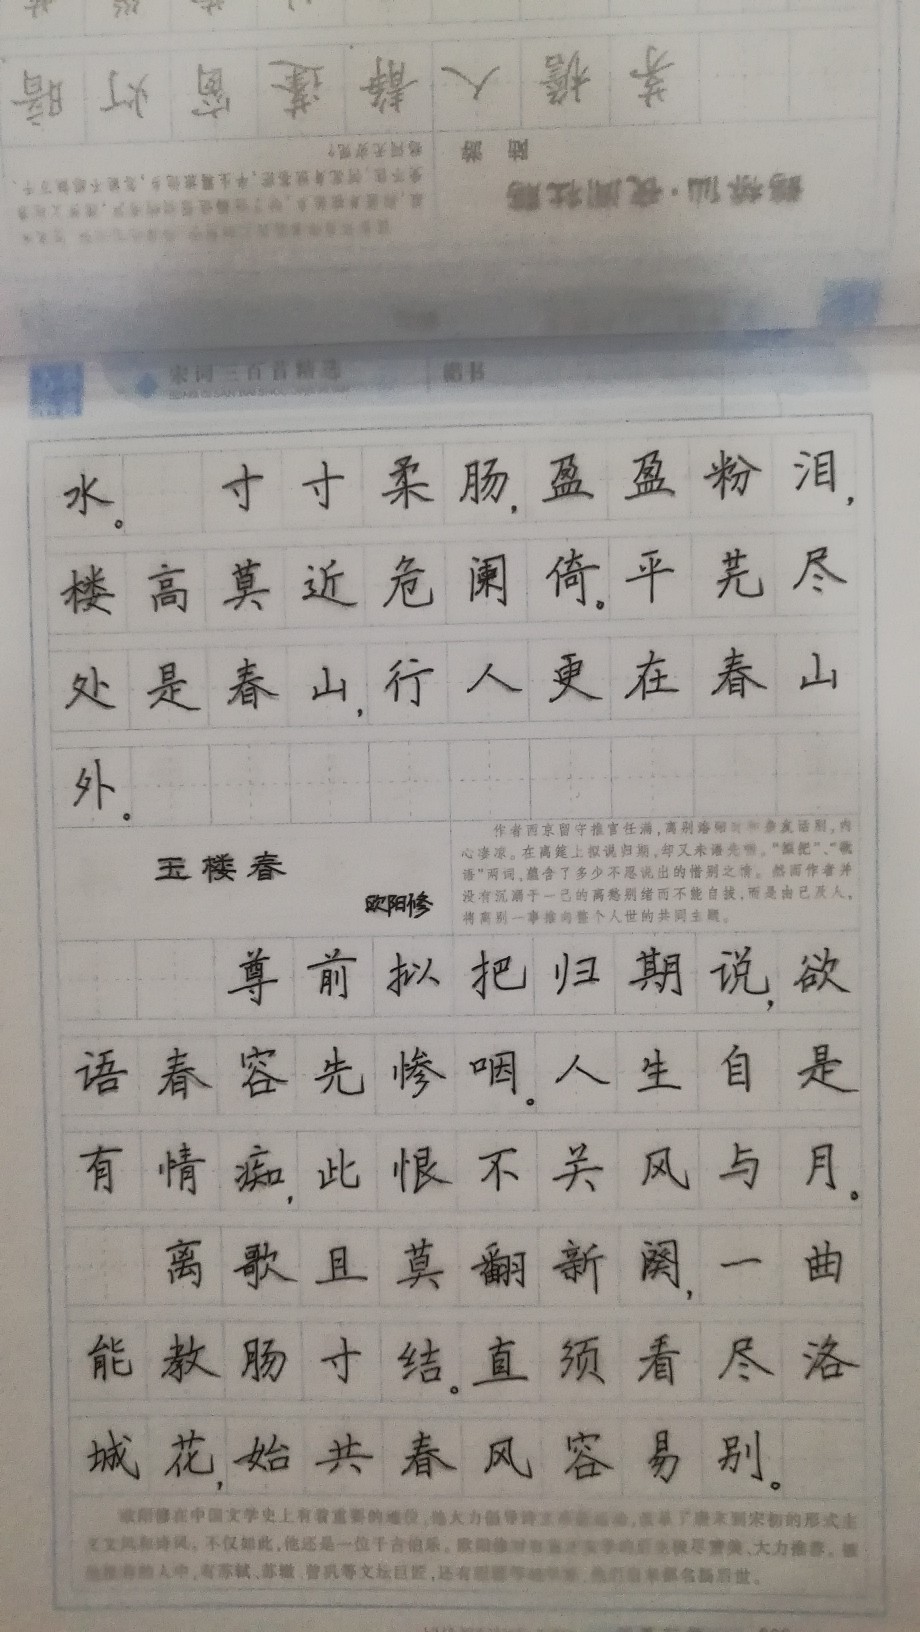 暗 灯 窗 蓬 静 人 檐 茅
陆 游
鹊桥仙·夜闻杜鹃
宋词三百首精选 楷书
水。 寸寸柔肠，盈盈粉泪，
楼高莫近危阑倚。平芜尽
处是春山，行人更在春山
外。
玉楼春
欧阳修
作者西京留守推官任满，离别洛阳时和亲友话别，内
心凄凉。在离筵上拟说归期，却又未语先咽。“拟把”、“欲
语”两词，蕴含了多少不愿说出的惜别之情。然而作者并
没有沉溺于一己的离愁别绪而不能自拔，而是由己及人，
将离别一事推向整个人世的共同主题。
尊前拟把归期说，欲
语春容先惨咽。人生自是
有情痴，此恨不关风与月。
离歌且莫翻新阕，一曲
能教肠寸结。直须看尽洛
城花，始共春风容易别。
欧阳修在中国文学史上有着重要的地位，他大力倡导诗文革新运动，改革了唐末到宋初的形式主
义文风和诗风。不仅如此，他还是一位千古伯乐。
人中，有苏轼、苏辙、曾巩等文坛巨匠，还有